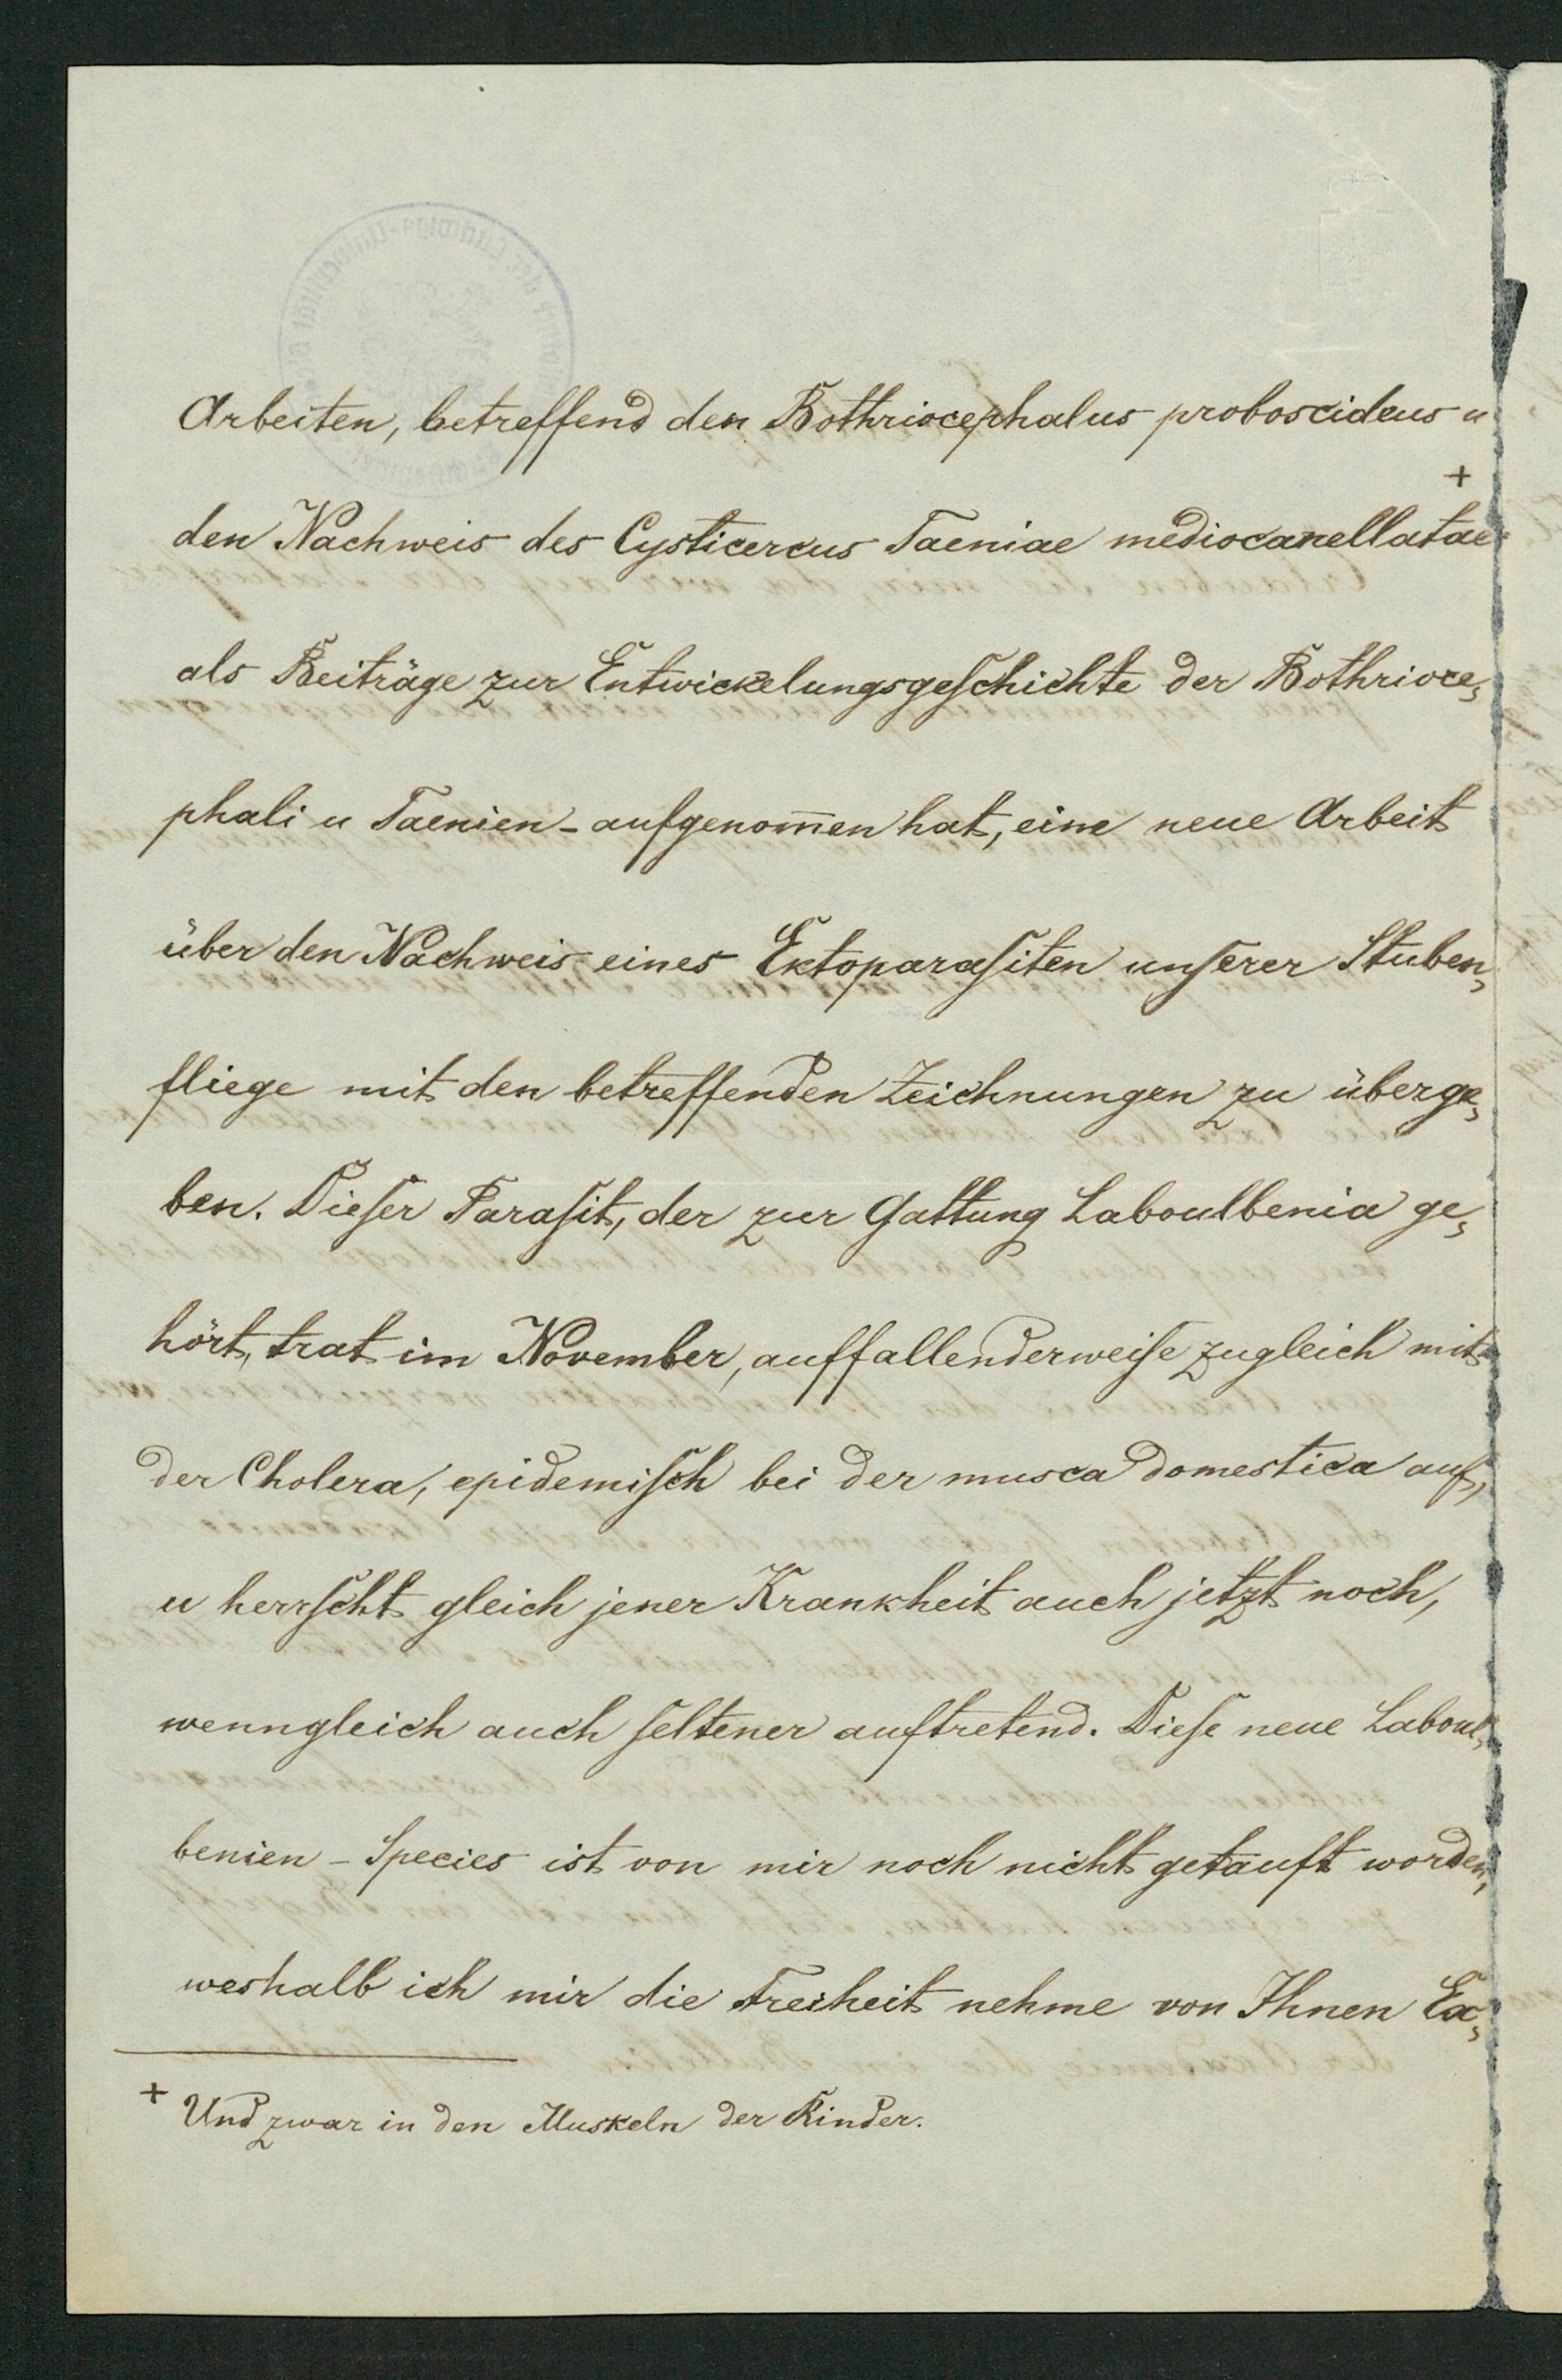 Arbeiten, betreffend den Bothriocephalus proboscideus u
den Nachweis des Cysticercus Taeniae mediocanellatae +
als Beiträge zur Entwickelungsgeſchichte der Bothrioce-
phali u Taenien - aufgenom̄en hat, eine neue Arbeit
über den Nachweis eines Ektoparaſiten unſerer Stuben-
fliege mit den betreffenden Zeichnungen zu überge-
ben. Dieſer Paraſit, der zur Gattung Laboulbenia ge-
hört, trat im November, auffallenderweiſe zugleich mit
der Cholera, epidemiſch bei der musca domestica auf,
u herrſcht gleich jener Krankheit auch jetzt noch,
wenngleich auch ſeltener auftretend. Dieſe neue Laboul-
benien - Species ist von mir noch nicht getauft worden,
weshalb ich mir die Freiheit nehme von Ihnen Ex-
+ Und zwar in den Muskeln der Rinder.